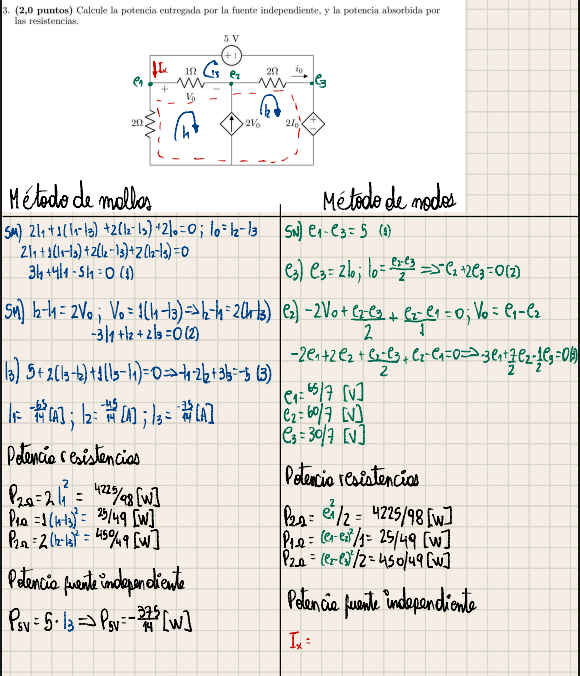 3. (2,0 puntos) Calcule la potencia entregada por la fuente independiente, y la potencia absorbida por
las resistencias.
5 V
+ -
Ix
1Ω
I3
e2
2Ω
i0
e1
e3
+ V0 -
2Ω
I1
2V0
I2
2I0
+ -
Método de mallas
SM) 2I1+1(I1-I3)+2(I2-I3)+2I0=0; I0=I2-I3
2I1+1(I1-I3)+2(I2-I3)+2(I2-I3)=0
3I1+4I2-5I3=0 (1)
SM) I2-I1=2V0; V0=1(I1-I3)=>I2-I1=2(I1-I3)
-3I1+I2+2I3=0 (2)
I3) 5+2(I3-I2)+1(I3-I1)=0=>-I1-2I2+3I3=-5 (3)
I1=-65/14[A]; I2=-45/14[A]; I3=-75/14[A]
Potencia resistencias
P2Ω=2I1²=4225/98[W]
P1Ω=1(I1-I3)²=25/49[W]
P2Ω=2(I2-I3)²=450/49[W]
Potencia fuente independiente
P5V=5·I3=>P5V=-375/14[W]
Método de nodos
SN) e1-e3=5 (1)
e3) e3=2I0; I0=e2-e3/2=>-e2+2e3=0(2)
e2) -2V0+e2-e3/2+e2-e1/1=0; V0=e1-e2
-2e1+2e2+e2-e3/2+e2-e1=0=>-3e1+7/2e2-1/2e3=0(3)
e1=65/7 [V]
e2=60/7 [V]
e3=30/7 [V]
Potencia resistencias
P2Ω=e1²/2=4225/98[W]
P1Ω=(e1-e2)²/1=25/49[W]
P2Ω=(e2-e3)²/2=450/49[W]
Potencia fuente independiente
Ix=